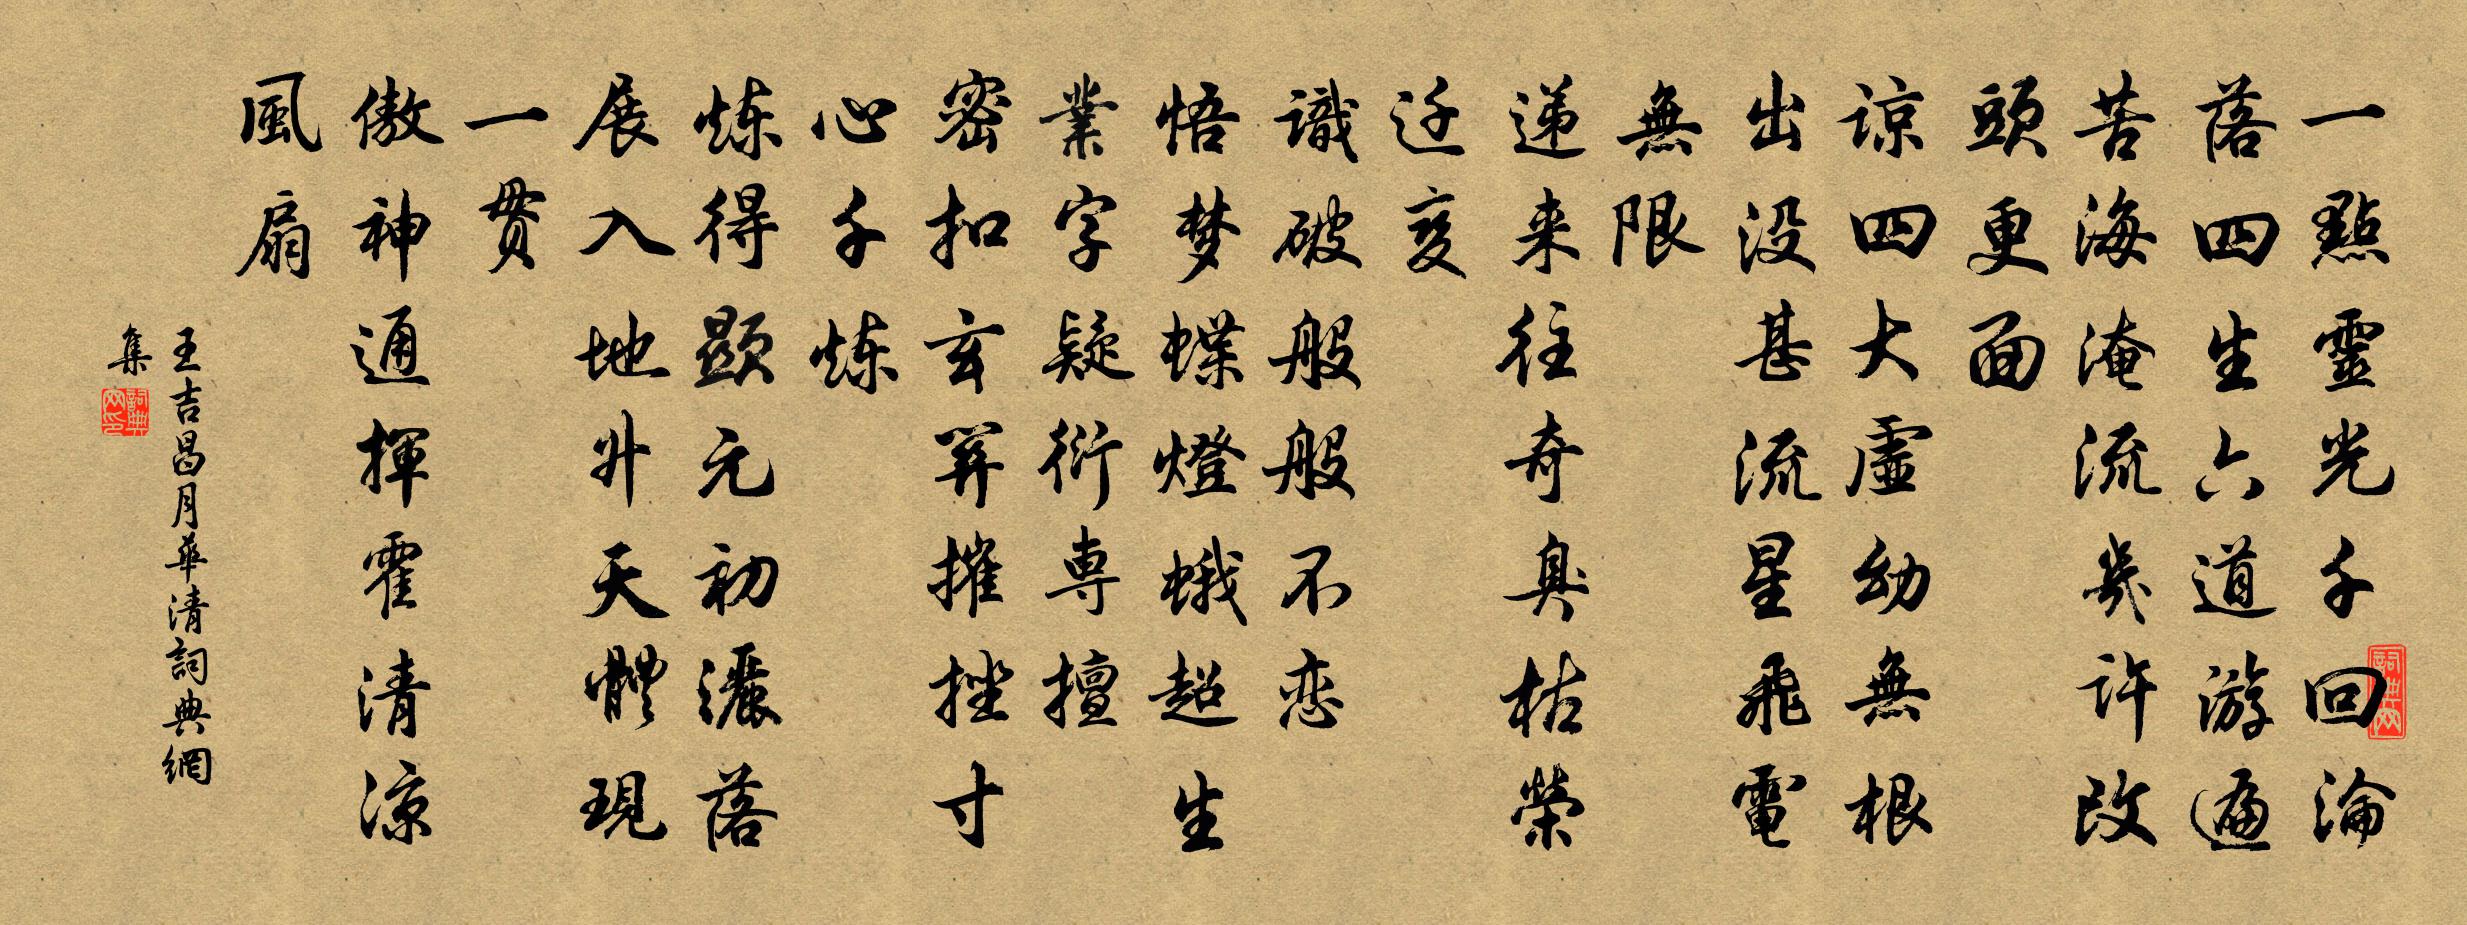 一點靈光千回淪
落四生六道游遍
苦海淹流幾许改
頭更面
谅四大虛幼無根
出没甚流星飛電
無限
递来往奇臭枯榮
迁变
識破般般不恋
悟梦蝶燈蛾超生
業字疑衍専擅
密扣玄關摧挫寸
心千炼
炼得顯元初灑落
展入地升天體現
一贯
傲神通揮霍清凉
風扇
王吉昌月華清詞典網
集
詞典網
詞典網印